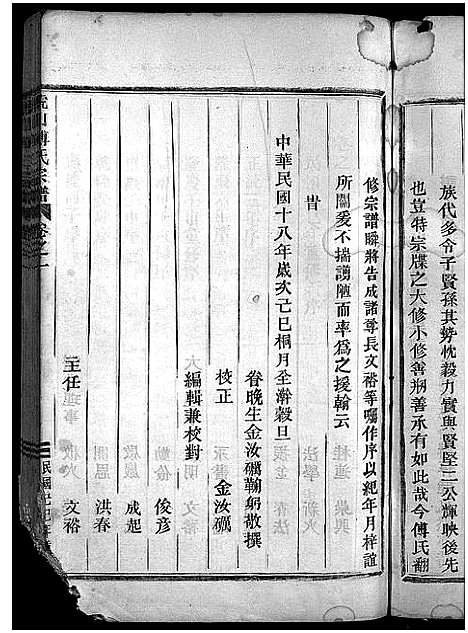 族代多令子賢孫其勢忱毅力實與賢堅三公輝映後先
也豈特宗牒之大修小修善剏善承有如此哉今傅氏翻
修宗譜瞬將告成諸尊長文裕等囑作序以紀年月梓誼
所關爰不揣謭陋而率為之援翰云
旹
中華民國十八年歲次己巳桐月全澣穀旦
眷晚生金汝礪鞠躬敬撰
校正 金汝礪
編輯兼校對
俊彦
成起
洪春
主任 文裕
山傅氏宗譜 卷之一
民國己巳年